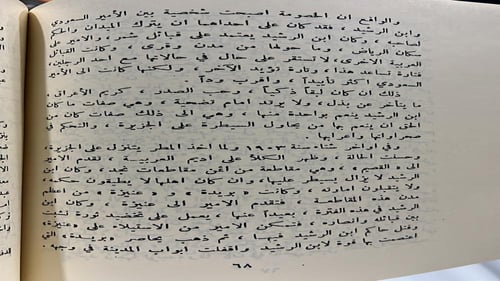 والواقع ان الخصومة اصبحت شخصية بين الأمير السعودي
وابن الرشيد ، فقد كان على أحدهما ان يترك الميدان والحكم
لصاحبه ، وكان ابن الرشيد يعتمد على قبائل شمر ، والأمير على
سكان الرياض ، وما حولها من مدن وقرى ، وكانت القبائل
العربية الأخرى لا تستقر على حال في حالاتها مع احد الرجلين ،
فتارة تساعد هذا ، وتارة تؤيد الآخر ، ولكنها كانت الى الأمير
السعودي اكثر تأييداً ، واقرب وداً .
ذلك ان كان لبقاً ذكياً ، رحب الصدر ، كريم الأخلاق ،
ما يتأخر عن بذل ، ولا يرتد امام تضحية ، وهي صفات ما كان
ابن الرشيد ينعم بواحدة منها ، وهي الى ذلك صفات كان من
الحق ان ينعم بها من يحاول السيطرة على الجزيرة ، والتحكم في
صحراواتها واعرابها
وفي اواخر شتاء سنة ١٩٠٣ ولما اخذ المطر يتنزل على الجزيرة،
وحسنت الحالة ، وظهر الكلأ على اديم العربية ، تقدم الأمير
الى « القصيم » ، وهي مقاطعة من اغنى مقاطعات نجد ، وكان ابن
الرشيد لا يزال يسيطر عليها، وان كان اهلها لا يطيقون حكمه،
ولا يتقبلون امارته ، وكانت « بريدة » و « عنيزة » من اعظم
مدن هذه المقاطعة ، فتقدم الأمير الى عنيزة ، وكان ابن
الرشيد في هذه الفترة ، بعيداً عنها ، يعمل على تخضيد ثورة نشبت
بين قبائله وانصاره ، فتمكن الأمير من الاستيلاء على «عنيزة»
وقتل حاكم ابن الرشيد فيها ، ثم ذهب يحاصر «بريدة» التي
اعتصمت بها قوة لابن الرشيد واقفلت ابواب المدينة في وجهه .
٦٨